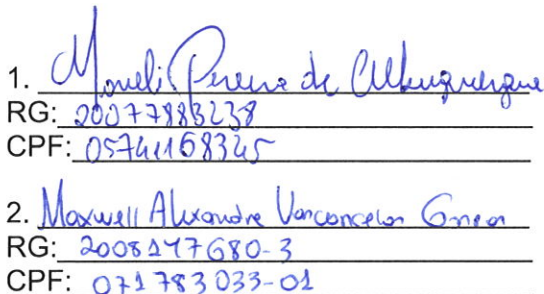 1. Moneli Pereira de Albuquerque
RG: 20077883238
CPF: 05741168345
2. Maxwell Alexandre Vasconcelos
RG: 2008147680-3
CPF: 071783033-01